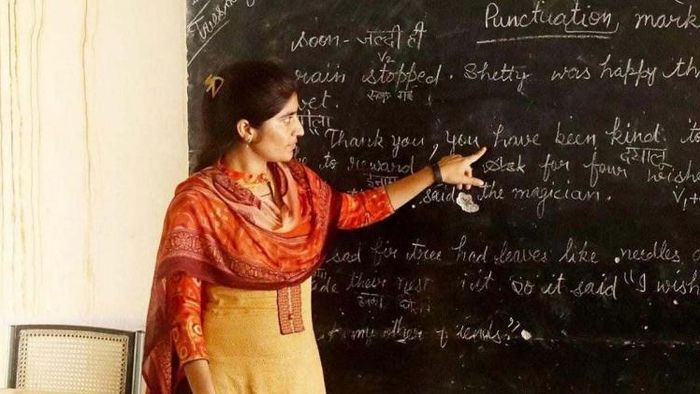 Punctuation mark
soon - जल्दी ही
V2
rain stopped. Shetty was happy the
रुक गई
"Thank you, you have been kind to
दयालु
to reward ask for four wishe
इनाम V1+
said the magician.
sad fir tree had leaves like needles
their rest it. So it said "I wish
my other friends".